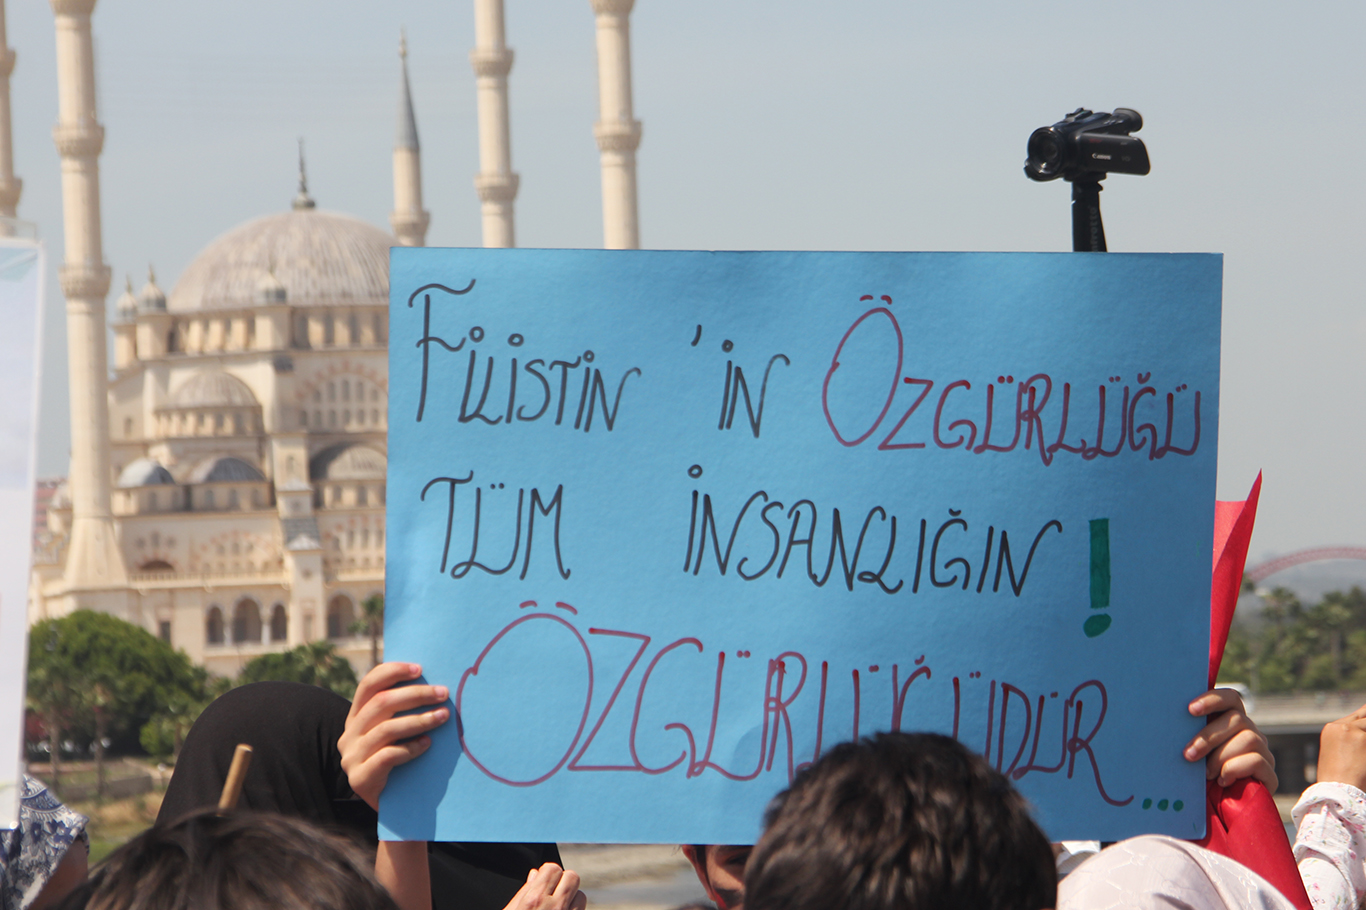 FİLİSTİN 'İN ÖZGÜRLÜĞÜ
TÜM İNSANLIĞIN !
ÖZGÜRLÜĞÜDÜR...
Canon